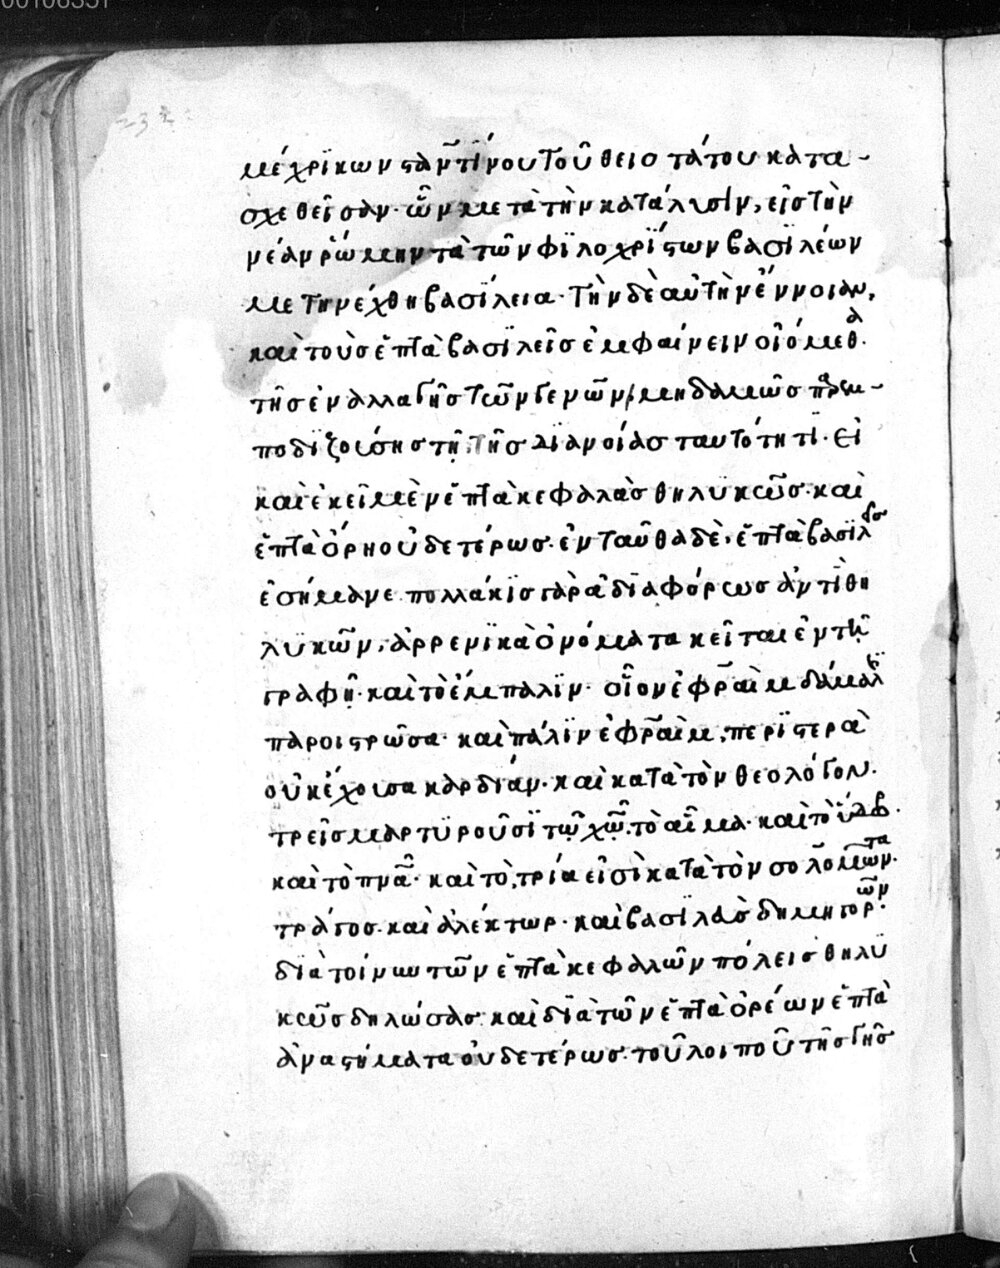 μέχρϊ κωνσταντίνου τοῦ θειοτάτου κατα-
σχεθεῖσαν· ὧν μετὰ τὴν κατάλυσϊν, εἰς τὴν
νέαν ῥώμην τὰ τῶν φϊλοχρϊστων βασϊλέων
μετηνέχθη βασϊλεια· τὴν δὲ αὐτὴν ἔννοιαν,
καὶ τοὺς ἑπτὰ βασϊλεῖς ἐμφαίνειν οἰόμεθα·
τῆς ἐναλλαγῆς τῶν γενῶν, μηδαμῶς παρεμ-
ποδϊζούσης τῆ τῆς δϊανοίας ταυτότητϊ· Εἰ
καὶ ἐκεῖ μὲν ἑπτὰ κεφαλὰς θηλυκῶς· καὶ
ἑπτὰ ὄρη οὐδετέρως· ἐνταῦθα δὲ, ἑπτὰ βασϊλεῖς
ἐσήμανε· πολλάκϊς γὰρ ἀδϊαφόρως ἀντὶ θη
λυκῶν, ἀρρενϊκὰ ὀνόματα κεῖται ἐν τῆ
γραφῆ· καὶ τὸ ἔμπαλϊν· οἷον ἐφραὶμ δάμαλϊς
παροιστρῶσα· καὶ πάλϊν ἐφραὶμ, περϊστερὰ
οὐκ ἔχουσα καρδίαν· καὶ κατὰ τὸν θεολόγον·
τρεῖς μαρτϋροῦσϊ τῷ χῷ· τὸ αἷμα· καὶ τὸ ὕδωρ·
καὶ τὸ πνα· καὶ τὸ, τρία εἰσὶ κατὰ τὸν σολομῶντα·
τράγος· καὶ ἀλέκτωρ· καὶ βασϊλεὺς δημηγορῶν·
δϊὰ τοίνυν τῶν ἑπτὰ κεφαλῶν πόλεις θηλϋ
κῶς δηλώσας· καὶ δϊὰ τῶν ἑπτὰ ὀρέων ἑπτὰ
ἀναστήματα οὐδετέρως· τοῦ λοιποῦ τῆς γῆς